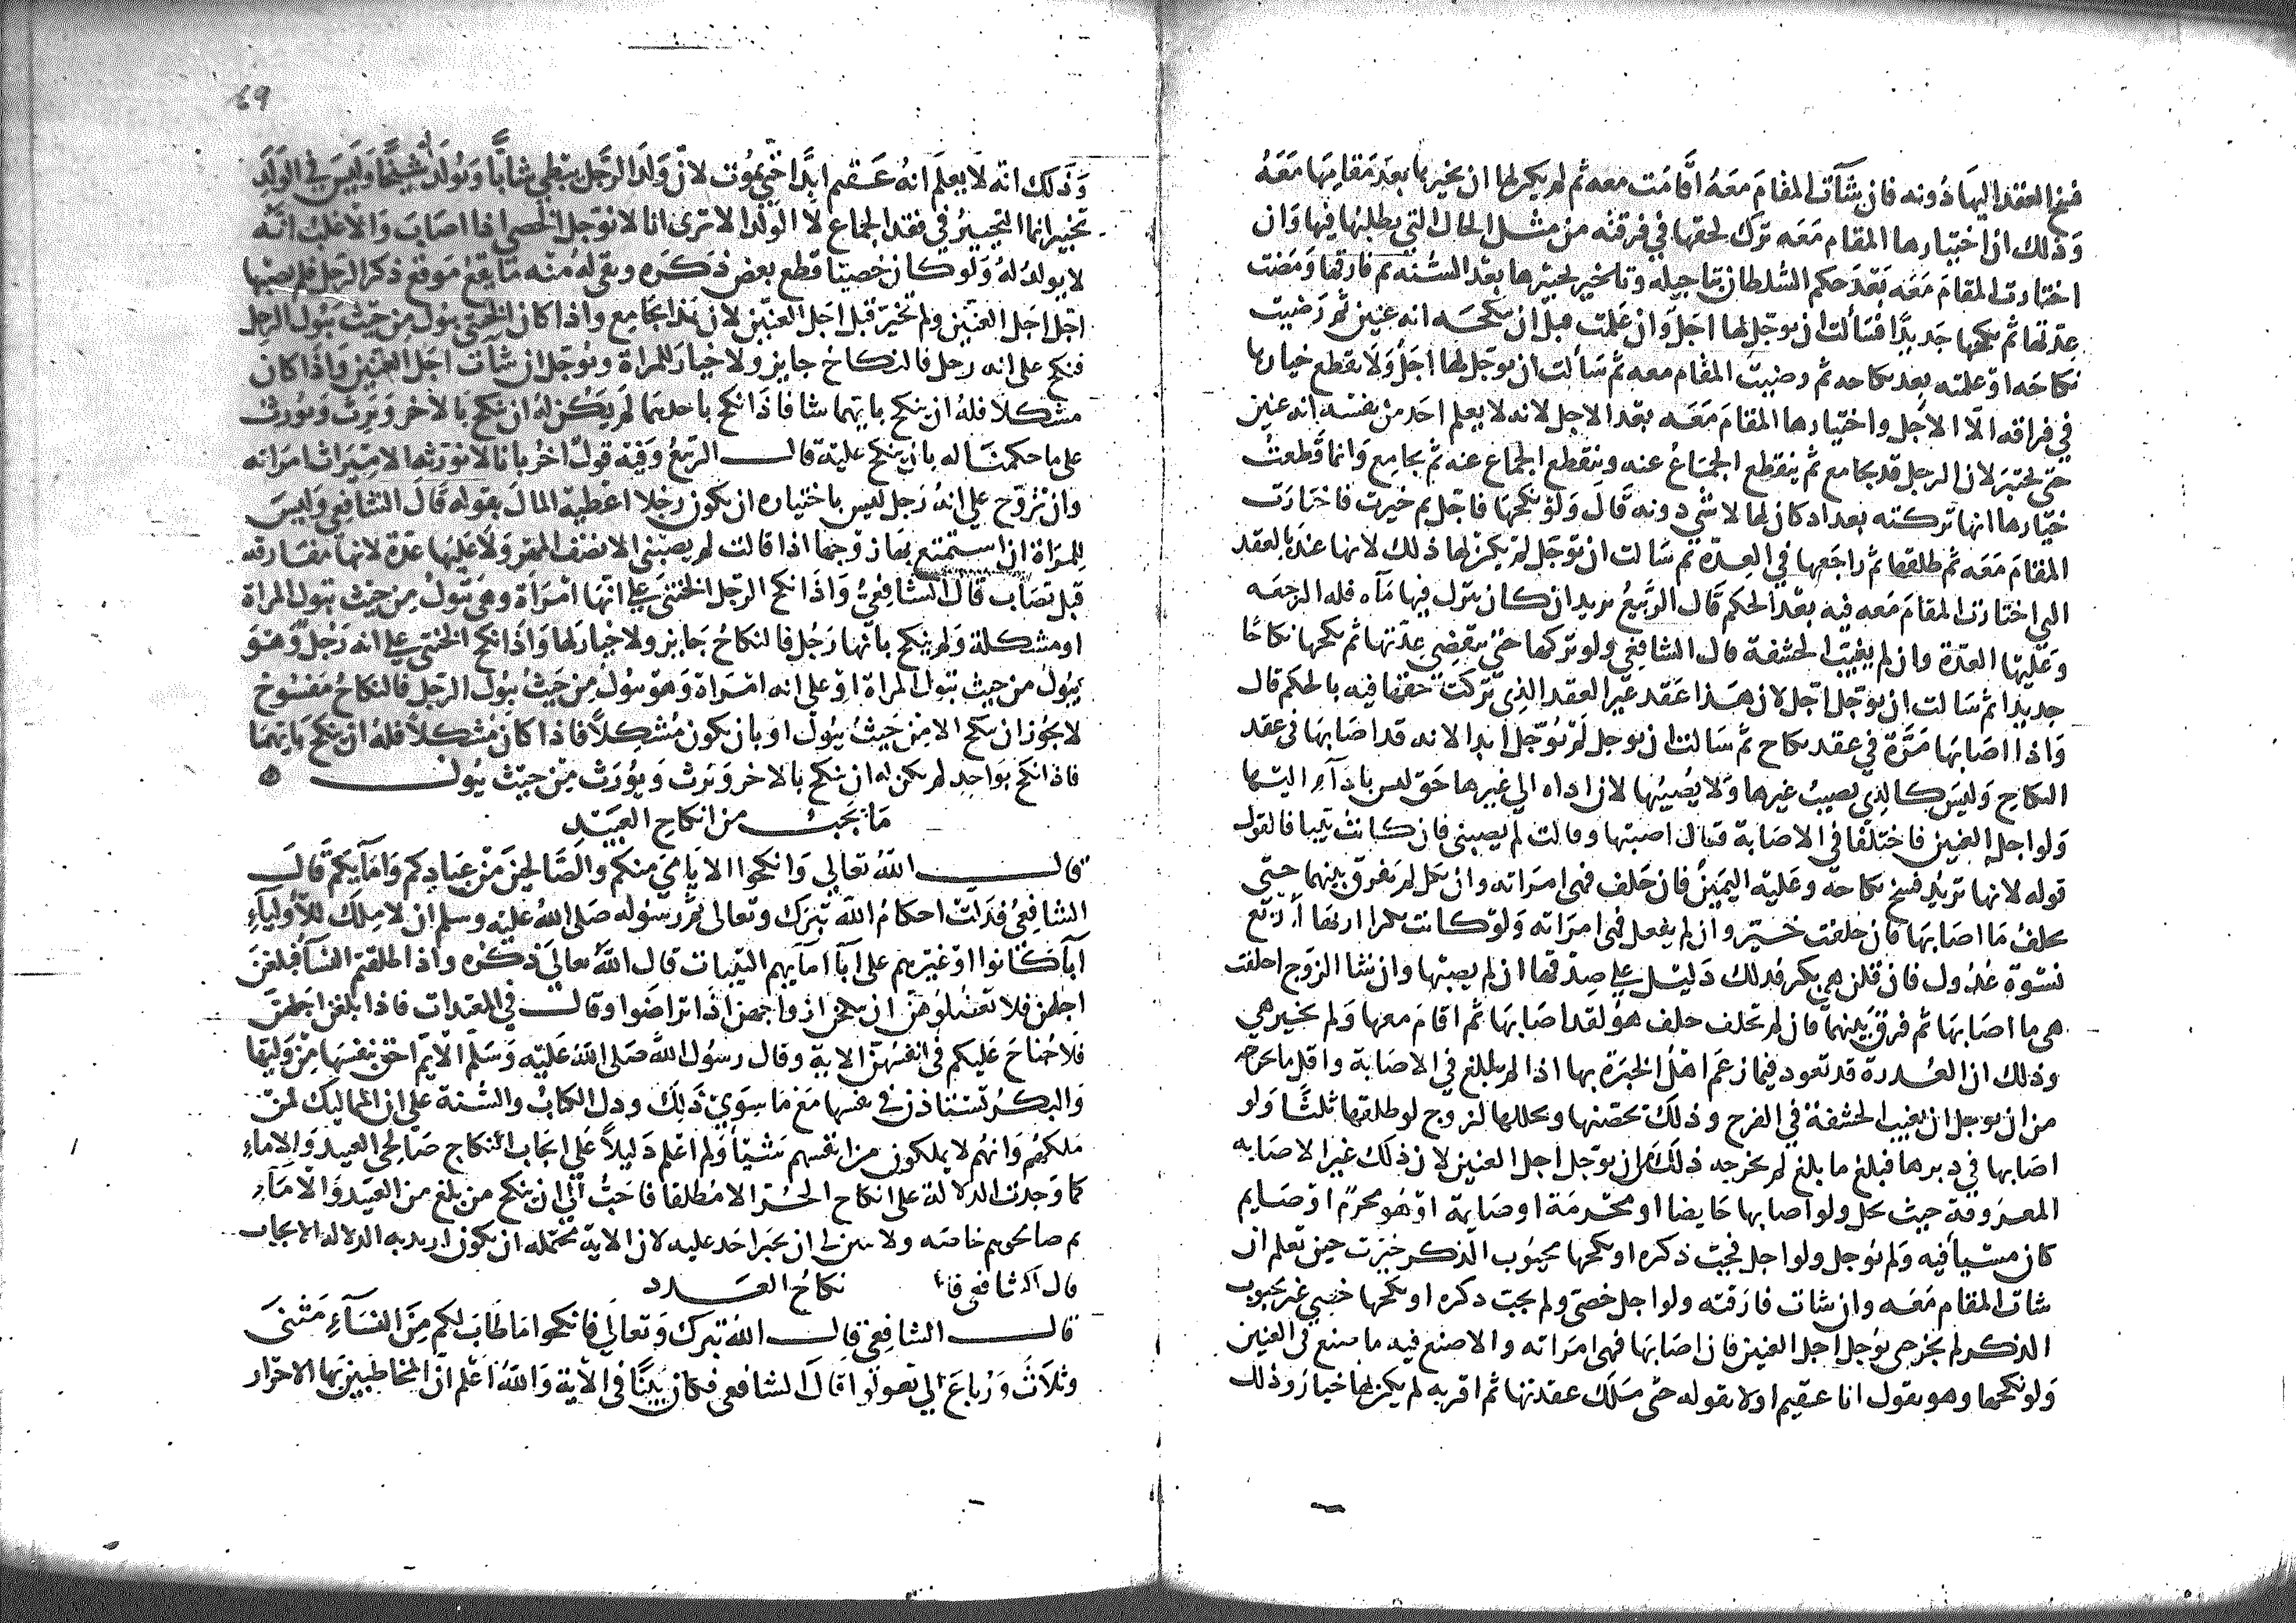 فسخ العقد اليها دونه فان شآت المقام معه اقامت معه ثم لم يكن لها ان يخيرها بعد مقامها معه
وذلك ان اختيارها المقام معه ترك لحقها في فرقته من مثل الحال التي يطلبها فيها وان
اختارت المقام معه بعد حكم السلطان بتاجيله وتاخير تخييرها بعد السنه ثم فارقها ومضت
عدتها ثم نكحها جديدا فسألت ان يوجل لها اجل وان علمت قبل ان تنكحه انه عنين ثم رضيت
نكاحه او علمته بعد نكاحه ثم رضيت المقام معه ثم سألت ان يوجل لها اجل ولا يقطع خيارها
في فراقه الا الاجل واختيارها المقام معه بعد الاجل لانه لا يعلم احد من نفسه انه عنين
حتى يختبر لان الرجل قد يجامع ثم ينقطع الجماع عنه وينقطع الجماع عنه ثم يجامع وانما قطعت
خيارها انها تركته بعد اذ كان لها لا شي دونه قال ولو نكحها فاجل ثم خيرت فاختارت
المقام معه ثم طلقها ثم راجعها في العدة ثم سالت ان توجل لم يكن لها ذلك لانها عنده بالعقد
التي اختارت المقام معه فيه بعد الحكم قال الربيع يريد ان كان ينزل فيها مآه فله الرجعه
وعليها العدة وان لم يغيب الحشفة قال الشافعي ولو تركها حتى تنقضي عدتها ثم نكحها نكاحا
جديدا ثم سالت ان يوجل اجل لان هذا عقد غير العقد الذي تركت حقها فيه بالحكم قال
واذا اصابها مرة في عقد نكاح ثم سالت ان يوجل لم يوجل ابدا لانه قد اصابها في عقد
النكاح وليس كالذي يصيب غيرها ولا يصيبها لان اداه الى غيرها حق ليس باداء اليها
ولو اجل العنين فاختلفا في الاصابة فقال اصبتها وقالت لم يصبني فان كانت ثيبا فالقول
قوله لانها تريد فسخ نكاحه وعليه اليمين فان حلف فهي امراته وان نكل لم يفرق بينهما حتى
تحلف ما اصابها فان حلفت خيرت وان لم يفعل فهي امراته ولو كانت بكرا اريها اربع
نسوة عدول فان قلن هي بكر فذلك دليل على صدقها ان لم يصبها وان شا الزوج احلفت
هي ما اصابها ثم فرق بينهما فان لم تحلف حلف هو لقد اصابها ثم اقام معها ولم تخير هي
وذلك ان العذرة قد تعود فيما زعم اهل الخبرة بها اذا لم يبلغ في الاصابة واقل ما يخرجه
من ان يوجل ان يغيب الحشفة في الفرج وذلك يحصنها ويحللها لزوج لو طلقها ثلثا ولو
اصابها في دبرها فبلغ ما بلغ لم يخرجه ذلك من ان يوجل اجل العنين لان ذلك غير الاصابه
المعروفة حيث تحل ولو اصابها حايضا او محرمة او صايمة او هو محرم او صايم
كان مسيأ فيه ولم يوجل ولو اجل فجب ذكره او نكحها مجبوب الذكر خيرت حين تعلم ان
شات المقام معه وان شات فارقته ولو اجل خصي ولم يجب ذكره او نكحها خصي غير مجبوب
الذكر لم تخير حتى يوجل اجل العنين فان اصابها فهي امراته والا صنع فيه ما صنع في العنين
ولو نكحها وهو يقول انا عقيم او لا يقوله حتى ملك عقدتها ثم اقر به لم يكن لها خيار وذلك
69
وذلك انه لا يعلم انه عقيم ابدا حتى يموت لان ولد الرجل يبطي شابا ويولد له شيخا وليس في الولد
تخيير انما التخيير في فقد الجماع لا الولد الا ترى انا لا نوجل الخصي اذا اصاب والاغلب انه
لا يولد له ولو كان خصيا قطع بعض ذكره وبقي له منه ما يقع موقع ذكر الرجل فلم يصبها
اجل اجل العنين ولم تخير قبل اجل العنين لان هذا يجامع واذا كان الخنثى يبول من حيث يبول الرجل
فنكح على انه رجل فالنكاح جايز ولا خيار للمراة ويوجل ان شات اجل العنين واذا كان
مشكلا فله ان ينكح بايهما شا فاذا نكح باحدهما لم يكن له ان ينكح بالاخر ويرث ويورث
على ما حكمنا له بان ينكح عليه قال الربيع وفيه قول اخر بانا لا نورثه الا ميراث امراة
وان تزوج على انه رجل ليس باختياره ان يكون رجلا اعطيه المال بقوله قال الشافعي وليس
للمراة ان استمتع بها زوجها اذا قالت لم يصبني الا نصف المهر ولا عليها عدة لانها مفارقه
قبل تصاب قال الشافعي واذا نكح الرجل الخنثى على انها امراة وهي تبول من حيث تبول المراة
او مشكلة ولم ينكح بانها رجل فالنكاح جايز ولا خيار لها واذا نكح الخنثى على انه رجل وهو
يبول من حيث تبول المراة او على انه امراة وهو يبول من حيث يبول الرجل فالنكاح مفسوخ
لا يجوز ان ينكح الا من حيث يبول او بان يكون مشكلا فاذا كان مشكلا فله ان ينكح بايهما
فاذا نكح بواحد لم يكن له ان ينكح بالاخر ويرث ويورث من حيث يبول ه
ما يجب من انكاح العبيد
قال الله تعالى وانكحوا الايامى منكم والصالحين من عبادكم وامايكم قال
الشافعي فدلت احكام الله تبرك وتعالى ثم رسوله صلى الله عليه وسلم ان لا ملك للاوليآء
آبآ كانوا او غيرهم على آبآ اماىهم الثيبات قال الله تعالى ذكره واذا طلقتم النسآ فبلغن
اجلهن فلا تعضلوهن ان ينكحن ازواجهن اذا تراضوا وقال في المعتدات فاذا بلغن اجلهن
فلا جناح عليكم في انفسهن الاية وقال رسول الله صلى الله عليه وسلم الايم احق بنفسها من وليها
والبكر تستاذن في نفسها مع ما سوى ذلك ودل الكتاب والسنة على ان المماليك لمن
ملكهم وانهم لا يملكون من انفسهم شيئا ولم اعلم دليلا على ايجاب انكاح صالحي العبيد والاماء
كما وجدت الدلالة على انكاح الحر الا مطلقا فاحب الي ان ينكح من بلغ من العبيد والامآء
ثم صالحوهم خاصه ولا يبين لي ان يجبر احد عليه لان الاية محتمله ان يكون اريد به الدلاله لا الايجاب
قال الشافعي نكاح العدد
قال الشافعي قال الله تبرك وتعالى فانكحوا ما طاب لكم من النسآء مثنى
وثلاث ورباع الى تعولوا قال الشافعي فكان بينا في الاية والله اعلم ان المخاطبين بها الاحرار